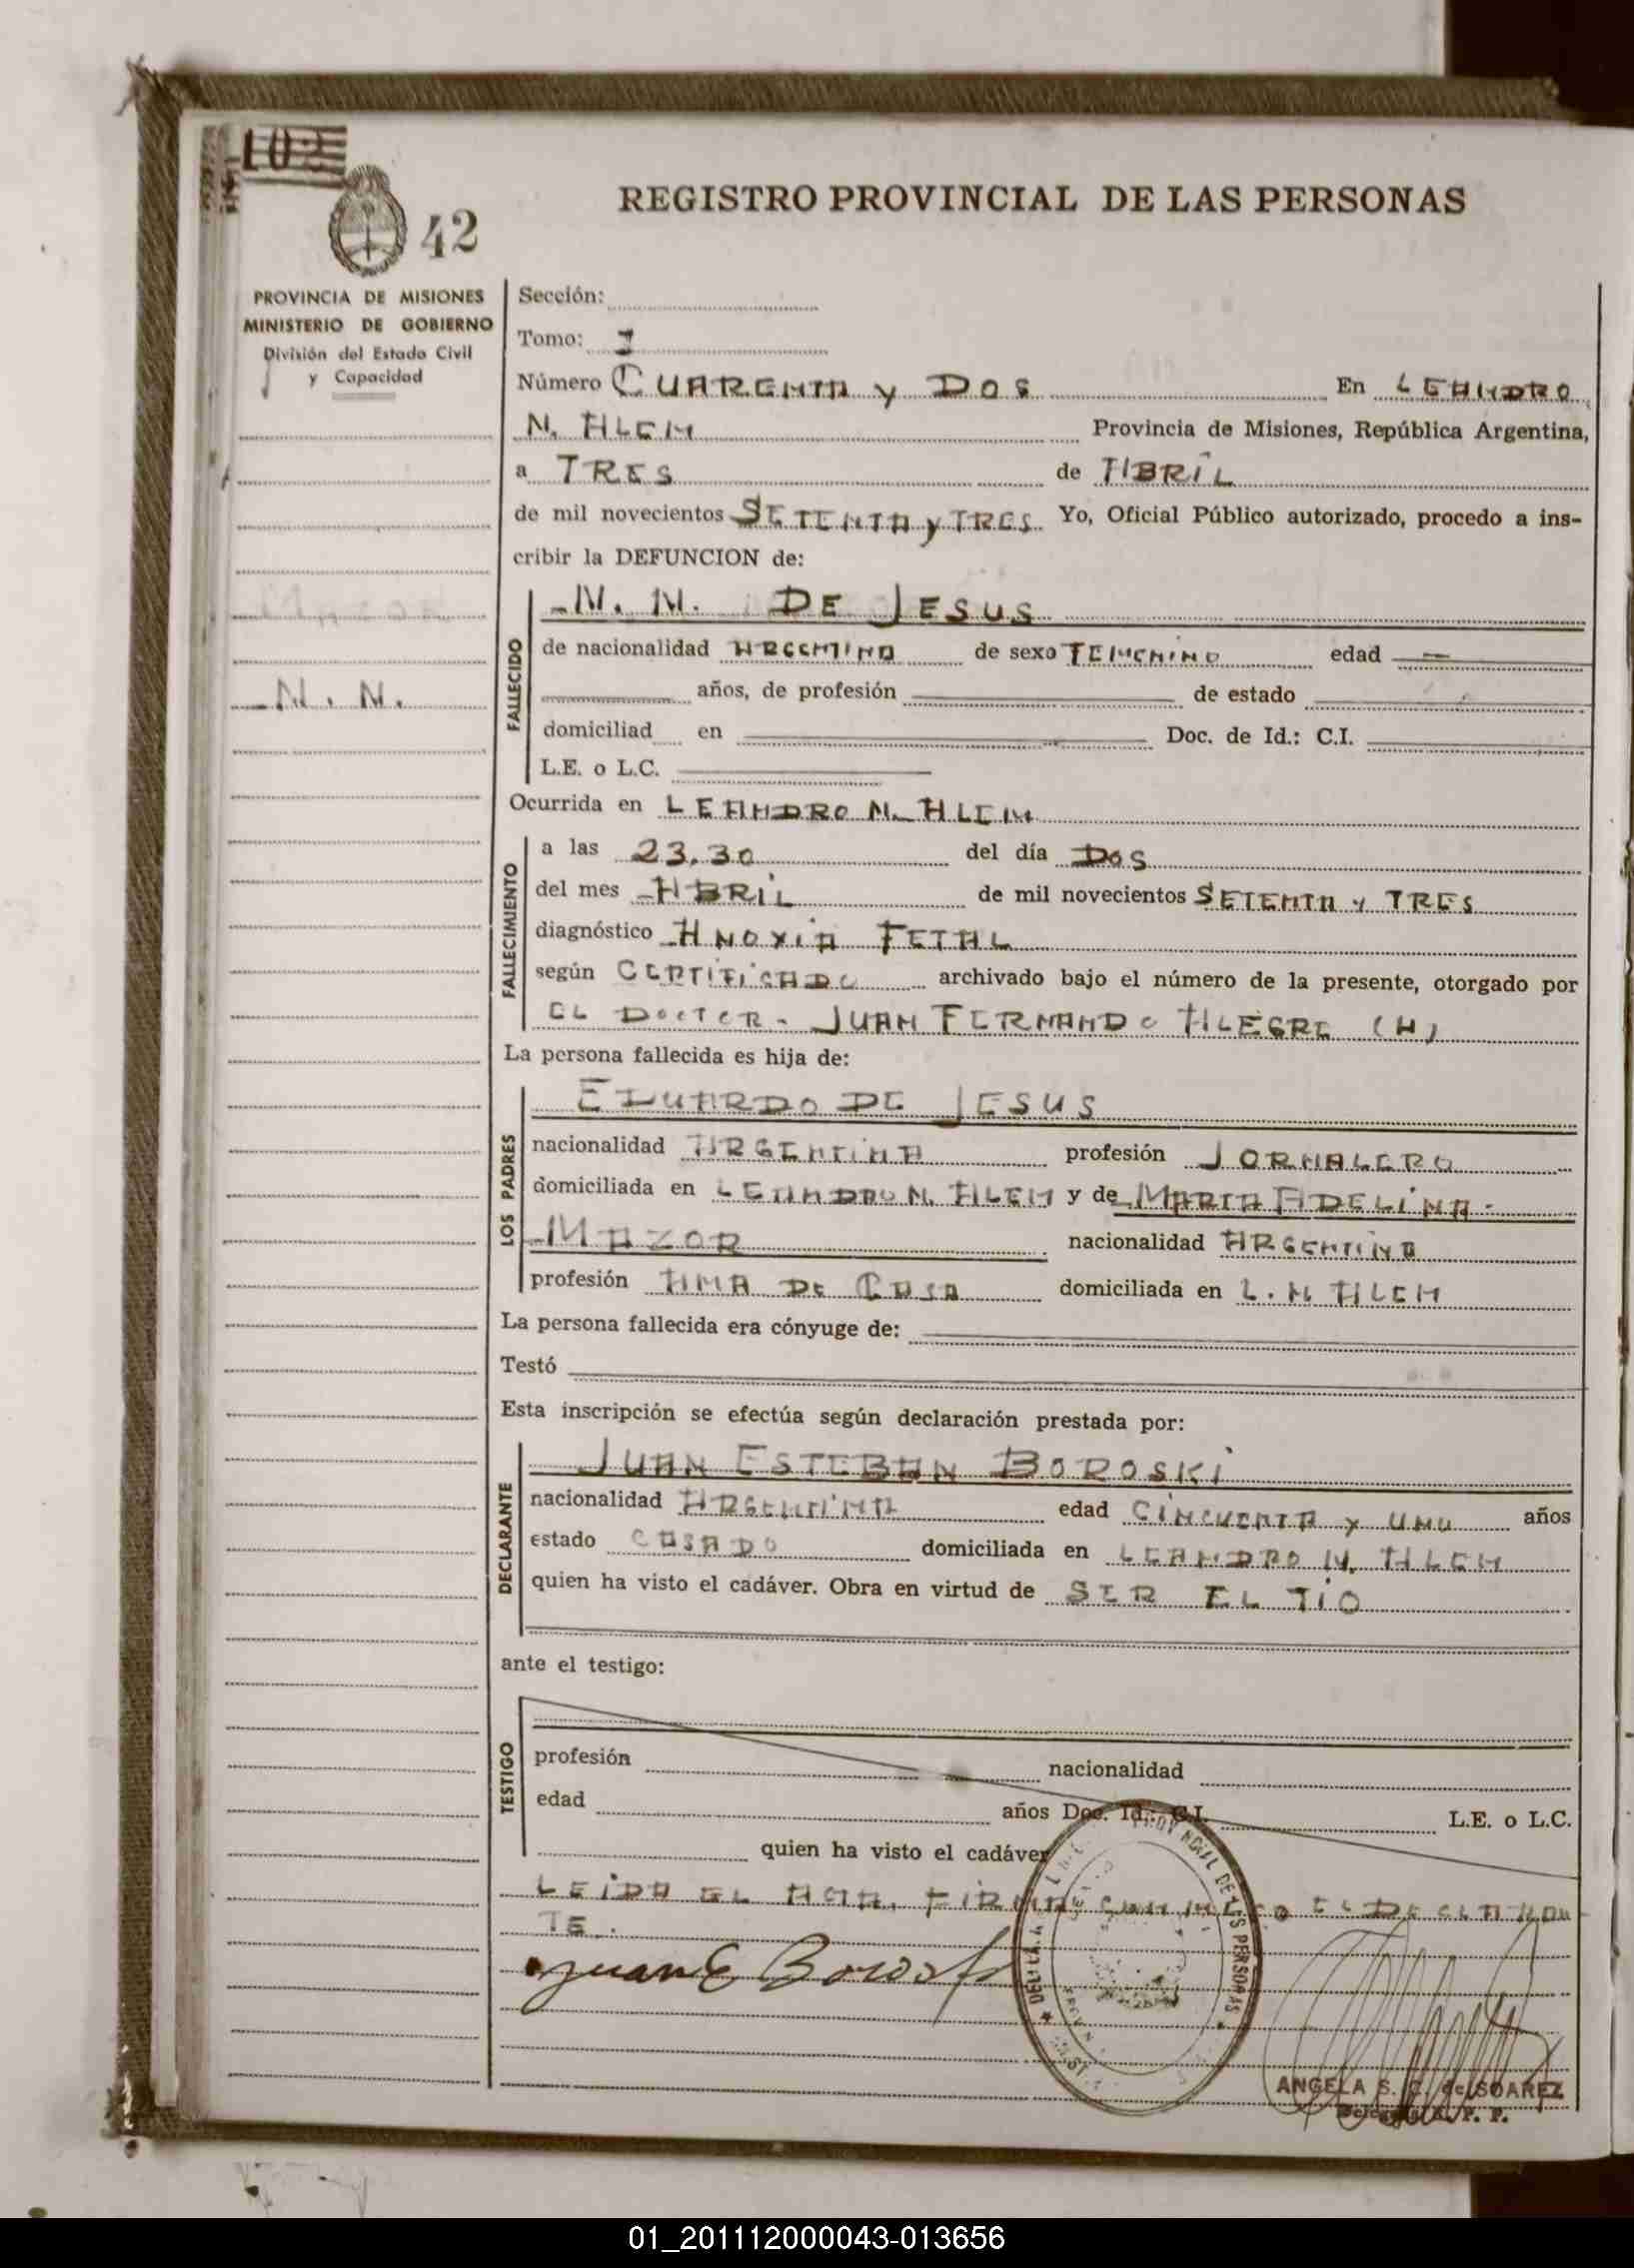 REGISTRO PROVINCIAL DE LAS PERSONAS
42
PROVINCIA DE MISIONES
MINISTERIO DE GOBIERNO
División del Estado Civil
y Capacidad
N. N.
Sección:
Tomo: I
Número CUARENTA y DOS En LEANDRO
N. ALEM Provincia de Misiones, República Argentina,
a TRES de ABRIL
de mil novecientos SETENTA y TRES Yo, Oficial Público autorizado, procedo a ins-
cribir la DEFUNCION de:
FALLECIDO
N. N. DE JESUS
de nacionalidad ARGENTINA de sexo FEMENINO edad —
años, de profesión de estado
domiciliad en Doc. de Id.: C.I.
L.E. o L.C.
Ocurrida en LEANDRO N. ALEM
FALLECIMIENTO
a las 23,30 del día DOS
del mes ABRIL de mil novecientos SETENTA y TRES
diagnóstico ANOXIA FETAL
según CERTIFICADO archivado bajo el número de la presente, otorgado por
EL DOCTOR - JUAN FERNANDO ALEGRE (H)
La persona fallecida es hija de:
LOS PADRES
EDUARDO DE JESUS
nacionalidad ARGENTINA profesión JORNALERO
domiciliada en LEANDRO N. ALEM y de MARIA ADELINA -
MAZOR nacionalidad ARGENTINA
profesión AMA DE CASA domiciliada en L. N ALEM
La persona fallecida era cónyuge de:
Testó
Esta inscripción se efectúa según declaración prestada por:
DECLARANTE
JUAN ESTEBAN BOROSKI
nacionalidad ARGENTINA edad CINCUENTA y UNO años
estado CASADO domiciliada en LEANDRO N. ALEM
quien ha visto el cadáver. Obra en virtud de SER EL TIO
ante el testigo:
TESTIGO
profesión nacionalidad
edad años Doc. Id.: C.I. L.E. o L.C.
quien ha visto el cadáver
LEIDA EL ACTA, FIRMA CONMIGO EL DECLARAN
TE.
Juan E Boroski
DE LAS PERSONAS
ANGELA S. C. de SOAREZ
01_201112000043-013656